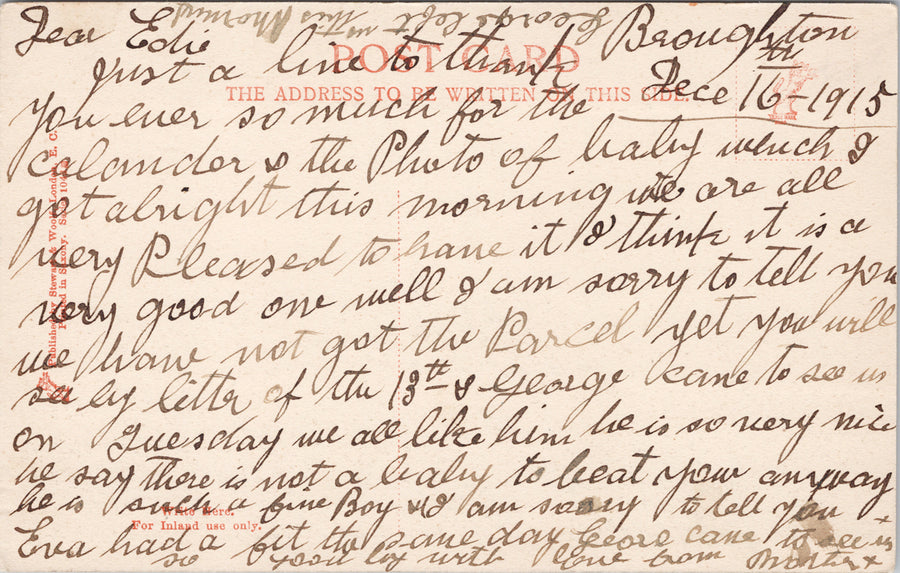 Dear Edie
Broughton
Dece 16th-1915
POST CARD
THE ADDRESS TO BE WRITTEN ON THIS SIDE.
Just a line to thank
you ever so much for the
calander & the Photo of baby wench I
got alright this morning we are all
very Pleased to have it & I think it is a
very good one well I am sorry to tell you
we have not got the Parcel yet you will
see by letter of the 13th & George cane to see us
on Tuesday we all like him he is so very nice
he say there is not a baby to beat your anyway
he is such a fine Boy & I am sorry to tell you
Eva had a fit the same day George cane to see us
so good by with love from Mother x
George left us
this Morning
Published by Stewart & Woolf, London, E. C.
Printed in Saxony.
Write Here.
For Inland use only.